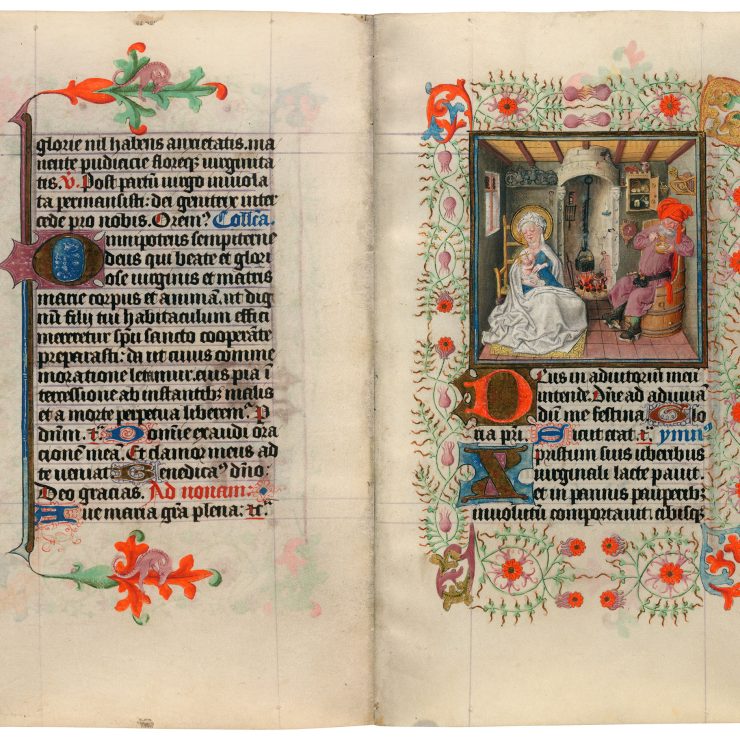 glorie nil habens anxietatis. ma
nente pudicicie floreq; virginita
tis. v. Post partū virgo inviola
ta permansisti: dei genitrix inter
cede pro nobis. Orem⁹ Collca.
Omnipotens sempiterne
deus qui beate et glori
ose virginis et matris
marie corpus et animam. ut dig
nū filij tui habitaculum effici
mereretur spū sancto cooperāte
preparasti: da ut cuius comme
moratione letamur. eius pia ī
tercessione ab instantib; malis
et a morte perpetua liberem⁹. P
dnm̄. tc̄. Domine exaudi ora
cionem meā. Et clamor meus ad
te veniat Benedica⁹ dño:
Deo gracias. Ad nonam:
Ave maria grā plena: tc̄.
Deus in adiutoriū meū
intende. Dñe ad adiuvā
dū me festina. Glo
ria pri. Sicut erat. tc̄. ymn⁹
Xpristum suis uberibus
virginali lacte pavit.
et in pannis pauperib;
involutū comportavit cibisq;